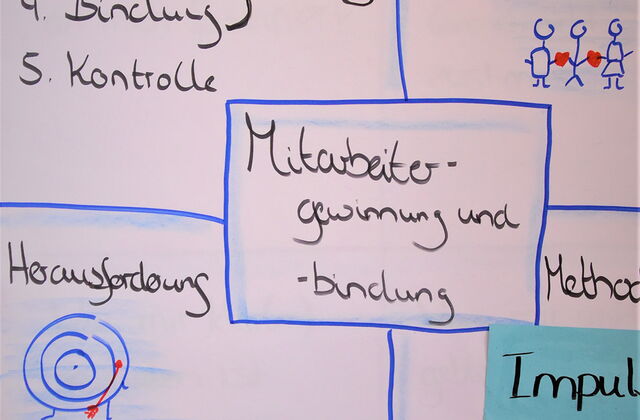 4. Bindung
5. Kontrolle
Mitarbeiter-
gewinnung und
-bindung
Herausforderung
Method
Impul